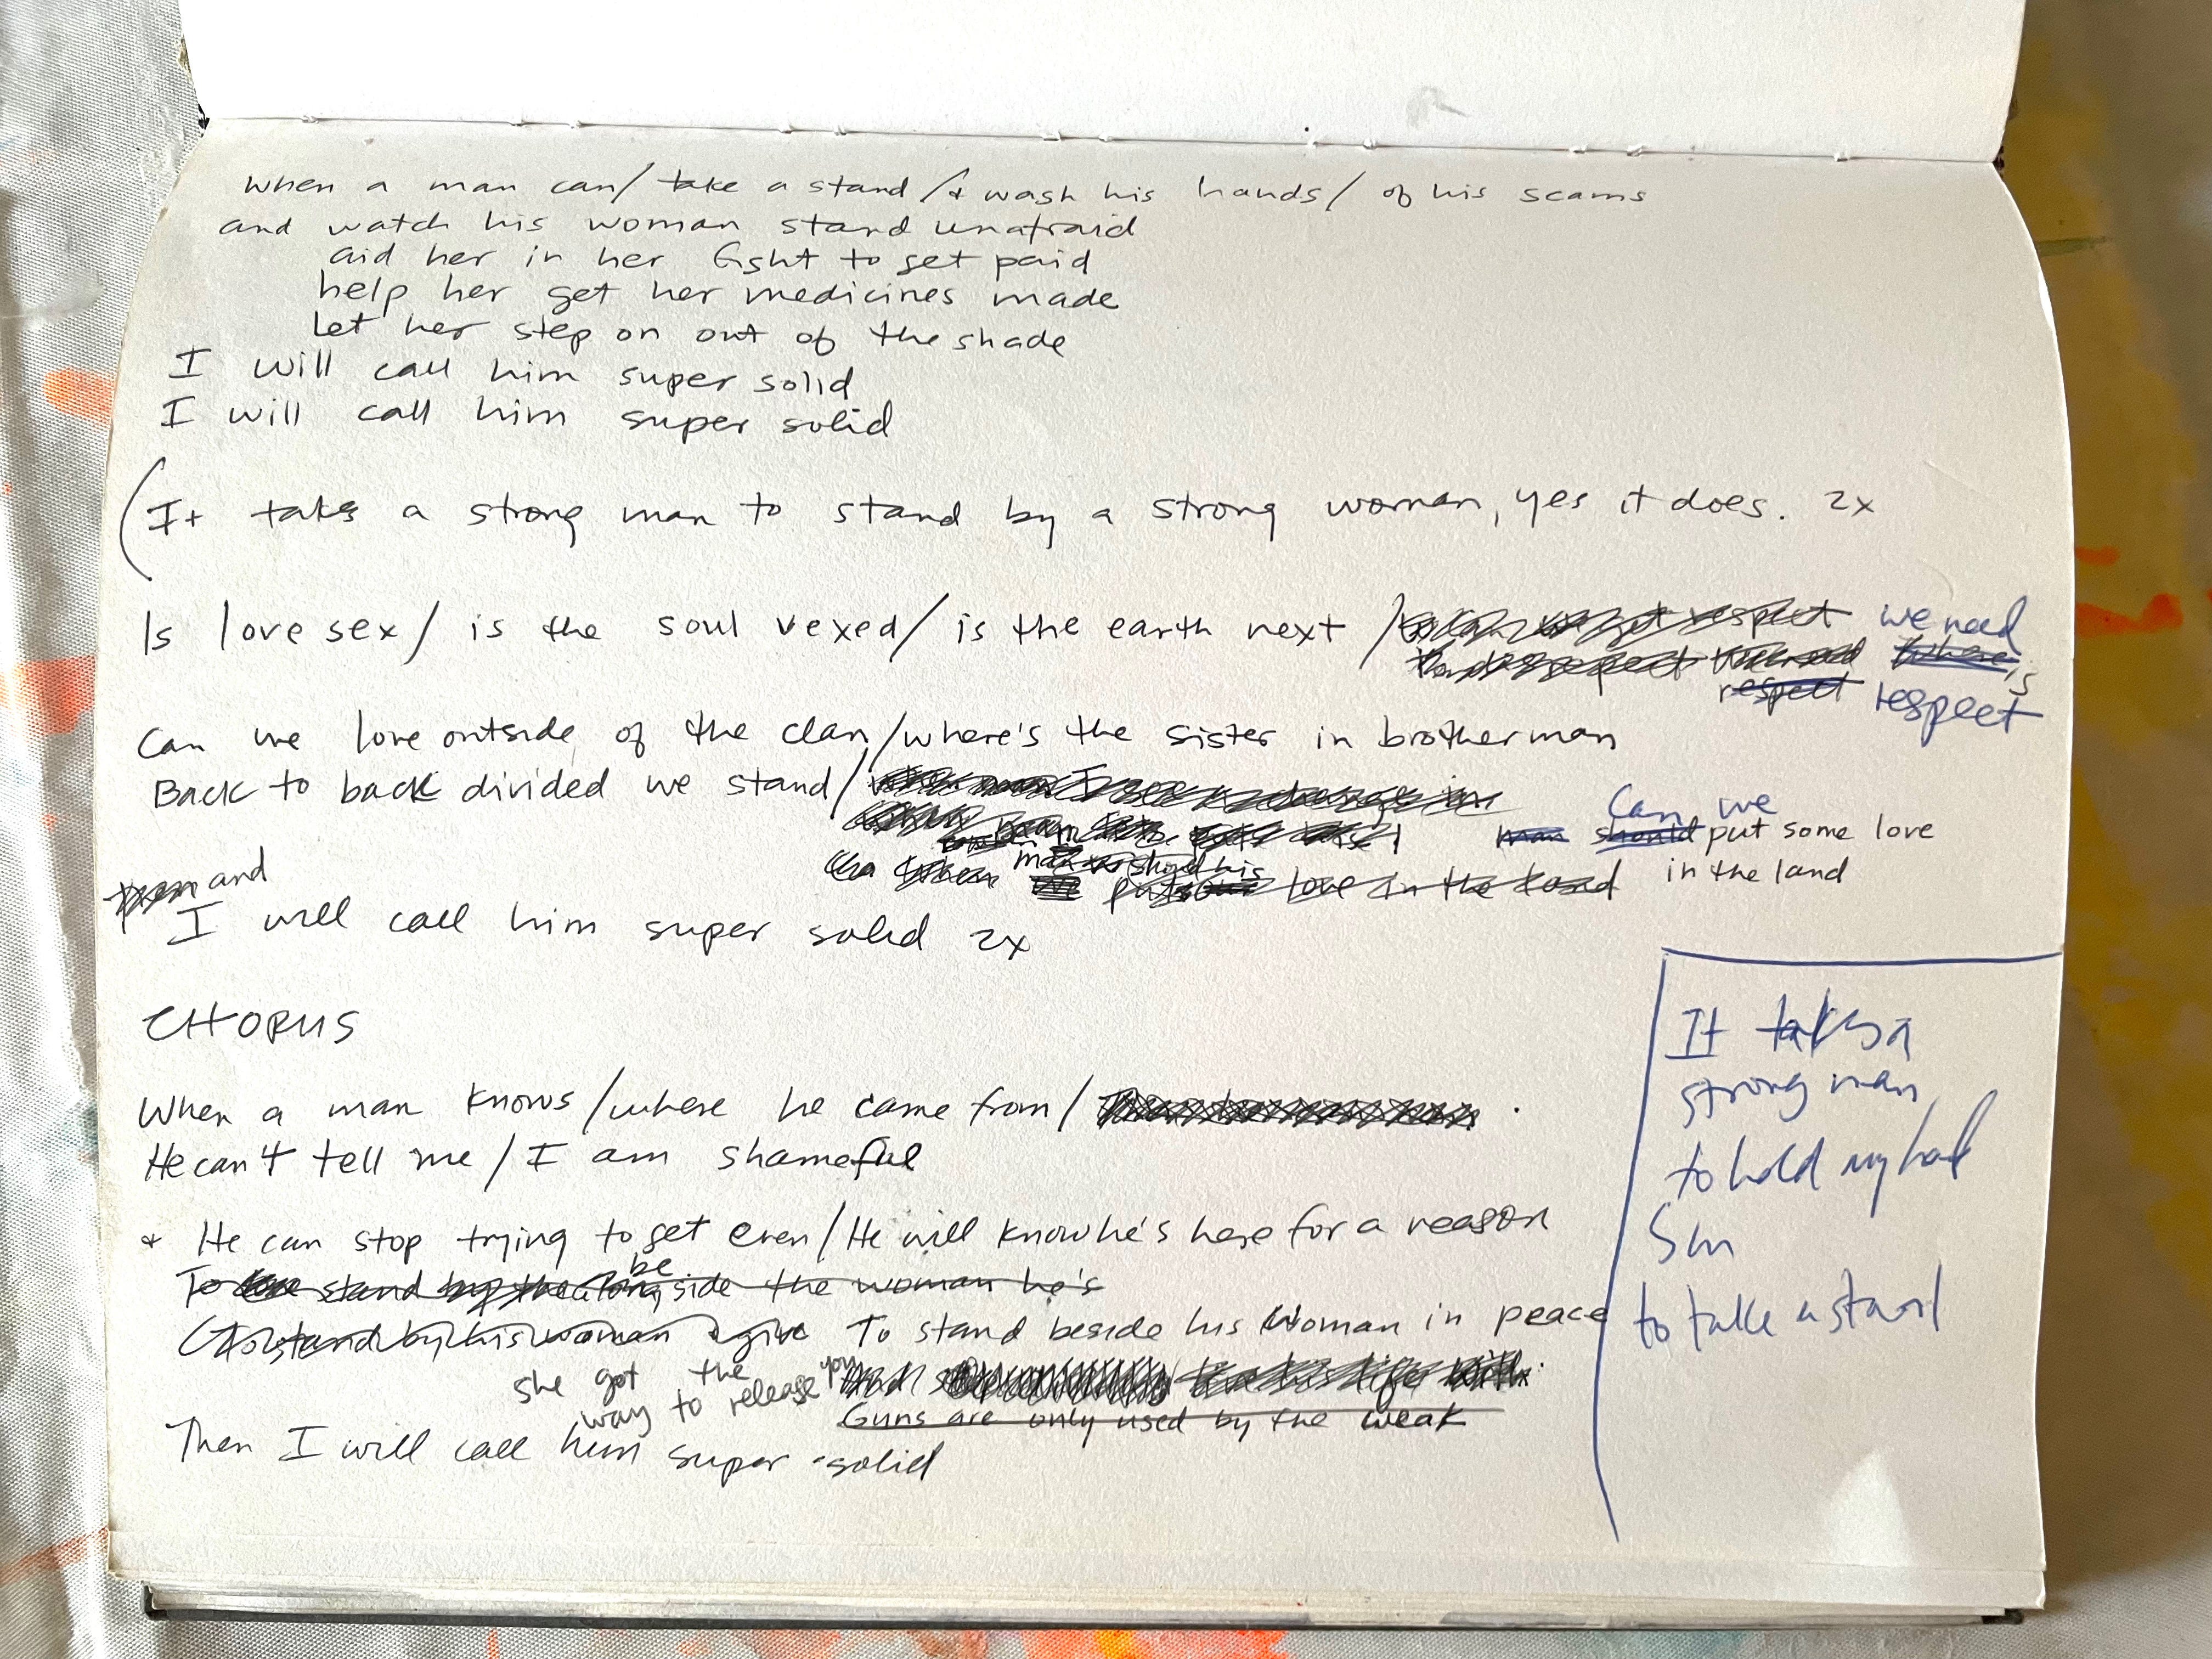 When a man can/ take a stand /& wash his hands/ of his scams
and watch his woman stand unafraid
aid her in her fight to get paid
help her get her medicines made
Let her step on out of the shade
I will call him super solid
I will call him super solid
(It takes a strong man to stand by a strong woman, yes it does. 2x
Is love sex/ is the soul vexed/ is the earth next / we need
where is
respect respect
Can we love outside of the clan/where's the sister in brotherman
Back to back divided we stand/
Can we
man should put some love
man should his
puts love in the land in the land
and
I will call him super solid 2x
CHORUS
When a man knows /where he came from/
He can't tell me / I am shameful
& He can stop trying to get even/He will know he's here for a reason
be
To stand by the along side the woman he's
(To stand by his woman & give To stand beside his Woman in peace
she got the you
way to release
Guns are only used by the weak
Then I will call him super solid
It takes a
strong man
to hold my hand
to take a stand